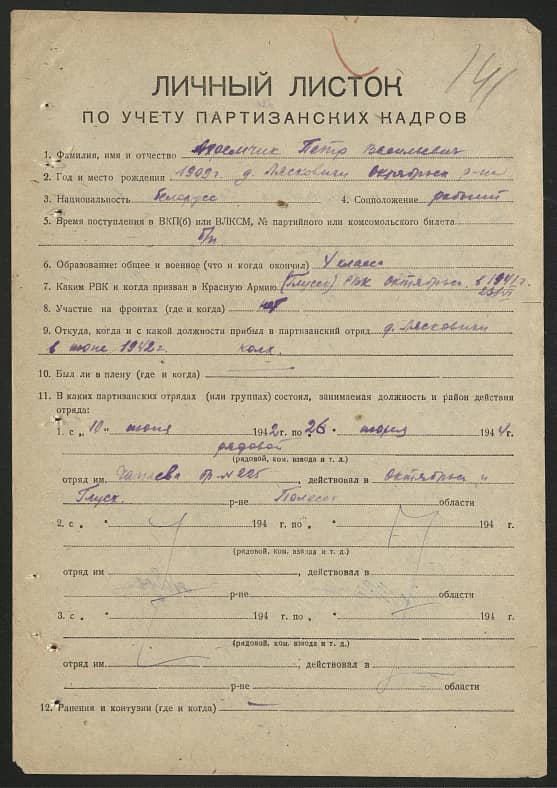 141
ЛИЧНЫЙ ЛИСТОК
ПО УЧЕТУ ПАРТИЗАНСКИХ КАДРОВ
1. Фамилия, имя и отчество Петр Васильевич
2. Год и место рождения 1909 г. д. Лясковичи Октябрьс р-на
3. Национальность белорусс 4. Соцположение рабочий
5. Время поступления в ВКП(б) или ВЛКСМ, № партийного или комсомольского билета
б/п
6. Образование: общее и военное (что и когда окончил) 4 класса
7. Каким РВК и когда призван в Красную Армию (Глусск) РВК Октябрьс. в 1941 г.
23/VI
8. Участие на фронтах (где и когда) нет
9. Откуда, когда и с какой должности прибыл в партизанский отряд д. Лясковичи
в июне 1942 г. колх.
10. Был ли в плену (где и когда)
11. В каких партизанских отрядах (или группах) состоял, занимаемая должность и район действия
отряда:
1. с „ 10 " июня 1942 г. по „ 26 " марта 1944 г.
рядовой
(рядовой, ком. взвода и т. д.)
отряд им. Чапаева бр. № 225, действовал в Октябрьс и
Глусск. р-не Полесск области
2. с „ " 194 г. по „ " 194 г.
(рядовой, ком. взвода и т. д.)
отряд им , действовал в
р-не области
3. с „ " 194 г. по „ " 194 г.
(рядовой, ком. взвода и т. д.)
отряд им. , действовал в
р-не области
12. Ранения и контузии (где и когда) –